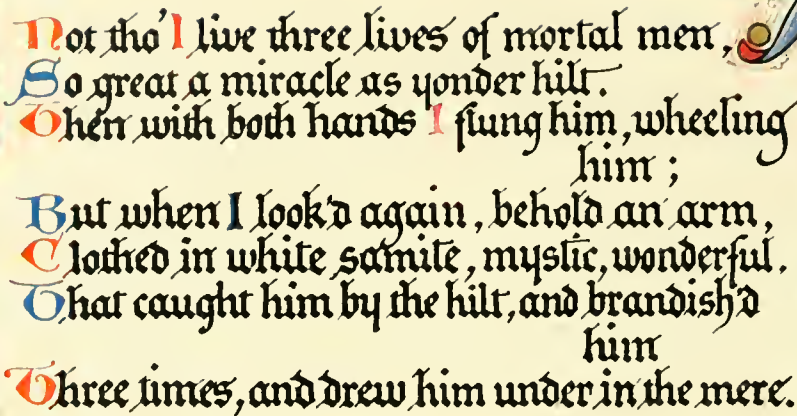 Not tho' I live three lives of mortal men,
So great a miracle as yonder hilt.
Then with both hands I flung him, wheeling
him;
But when I look'd again, behold an arm,
Clothed in white samite, mystic, wonderful,
That caught him by the hilt, and brandish'd
him
Three times, and drew him under in the mere.